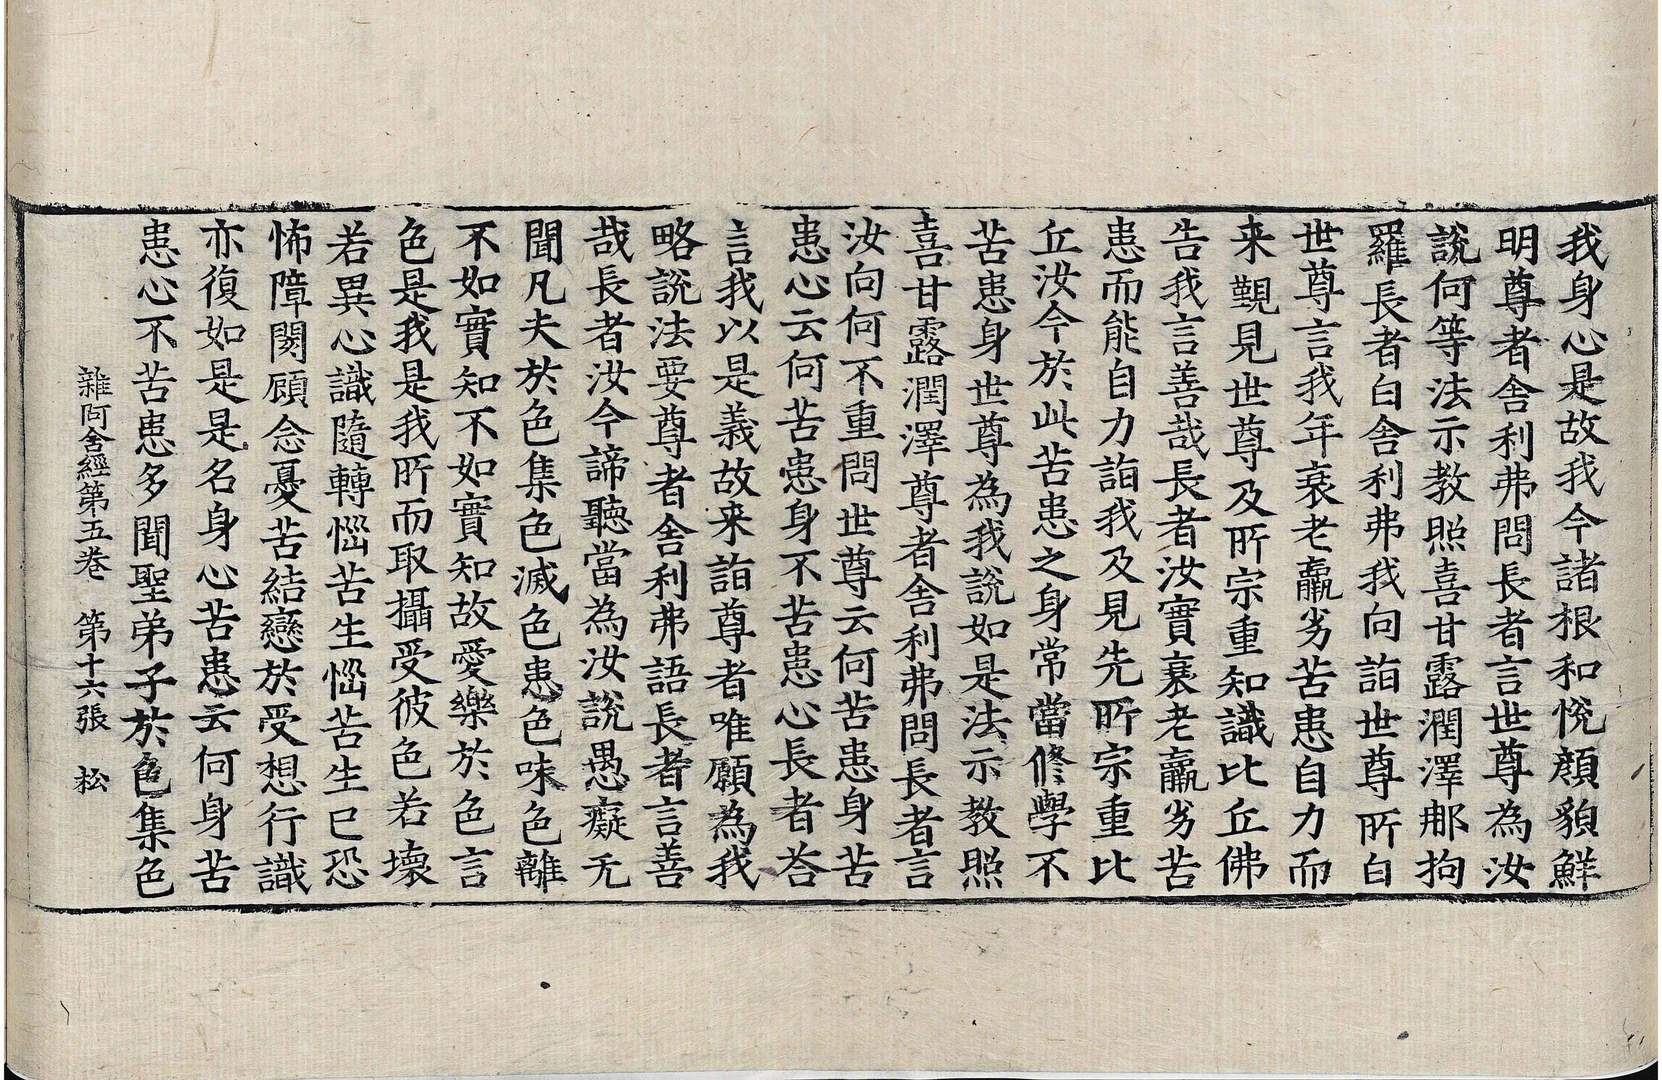 我身心是故我今諸根和恱顔貌鮮
明尊者舎利弗問長者言世尊為汝
說何等法示教照喜甘露潤澤那拘
羅長者白舎利弗我向詣世尊所白
世尊言我年衰老羸劣苦患自力而
来覲見世尊及所宗重知識比丘佛
告我言善哉長者汝實衰老羸劣苦
患而能自力詣我及見先所宗重比
丘汝今於此苦患之身常當修學不
苦患身世尊為我說如是法示教照
喜甘露潤澤尊者舎利弗問長者言
汝向何不重問世尊云何苦患身苦
患心云何苦患身不苦患心長者荅
言我以是義故来詣尊者唯願為我
略說法要尊者舎利弗語長者言善
哉長者汝今諦聽當為汝說愚癡无
聞凡夫於色集色滅色患色味色離
不如實知不如實知故愛樂於色言
色是我是我所而取攝受彼色若壞
若異心識隨轉惱苦生惱苦生已恐
怖障閡顧念憂苦結戀於受想行識
亦復如是是名身心苦患云何身苦
患心不苦患多聞聖弟子於色集色
雜阿舎經第五卷　第十六張　松